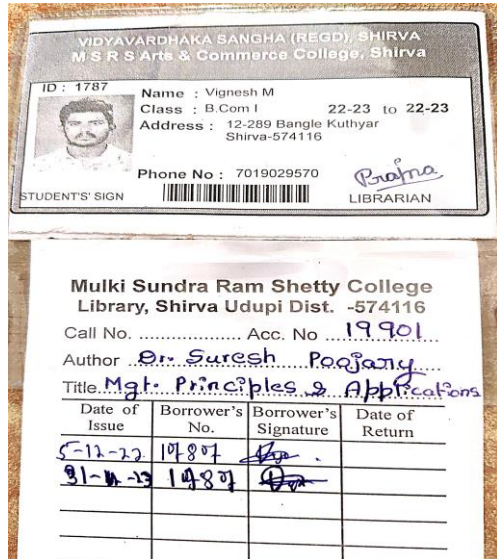 VIDYAVARDHAKA SANGHA (REGD), SHIRVA
M S R S Arts & Commerce College, Shirva
ID : 1787
Name : Vignesh M
Class : B.Com I 22-23 to 22-23
Address : 12-289 Bangle Kuthyar
Shirva-574116
Phone No : 7019029570
Prajna
STUDENT'S' SIGN LIBRARIAN
Mulki Sundra Ram Shetty College
Library, Shirva Udupi Dist. -574116
Call No. .................... Acc. No 19901
Author Dr. Suresh Poojary
Title Mgt. Principles & Applications
Date of Issue Borrower's No. Borrower's Signature Date of Return
5-12-22 1787
1787